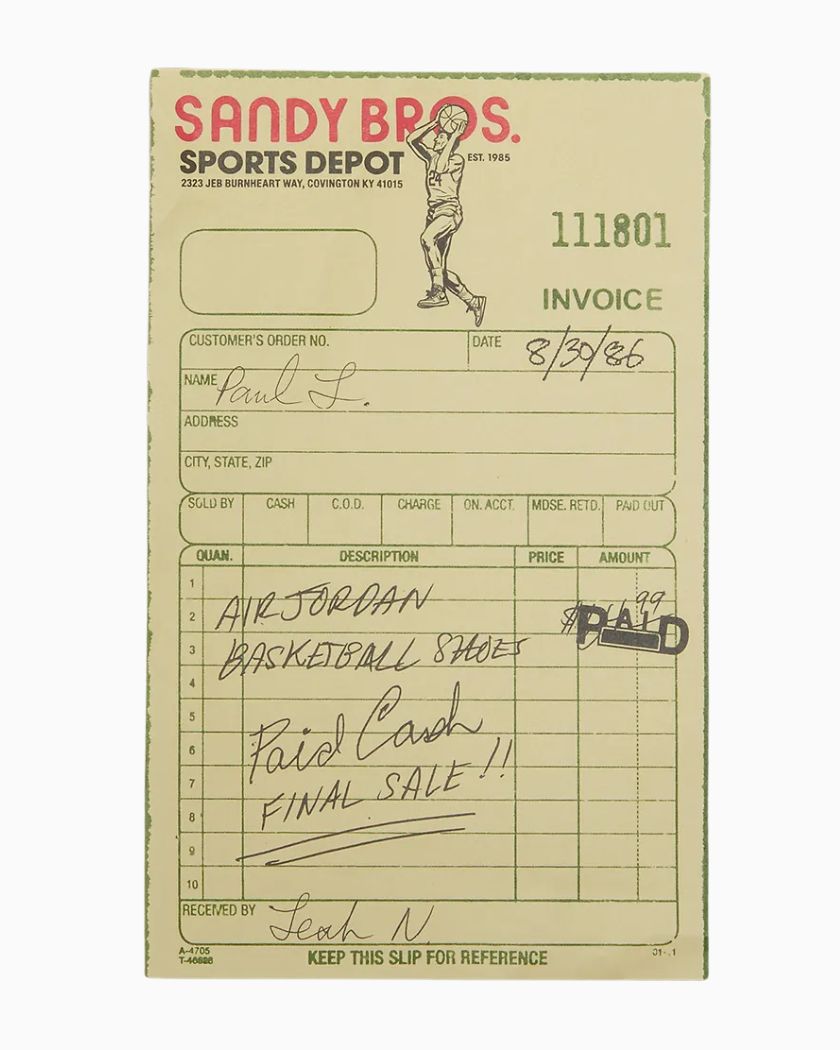 SANDY BROS.
SPORTS DEPOT
EST. 1985
2323 JEB BURNHEART WAY, COVINGTON KY 41015
24
111801
INVOICE
CUSTOMER'S ORDER NO.
DATE 8/30/86
NAME Paul L.
ADDRESS
CITY, STATE, ZIP
SOLD BY CASH C.O.D. CHARGE ON. ACCT. MDSE. RETD. PAID OUT
QUAN. DESCRIPTION PRICE AMOUNT
1
2 AIR JORDAN $ 99
PAID
3 BASKETBALL SHOES
4
5
6 Paid Cash
7
8 FINAL SALE!!
9
10
RECEIVED BY Leah N.
A-4705
KEEP THIS SLIP FOR REFERENCE